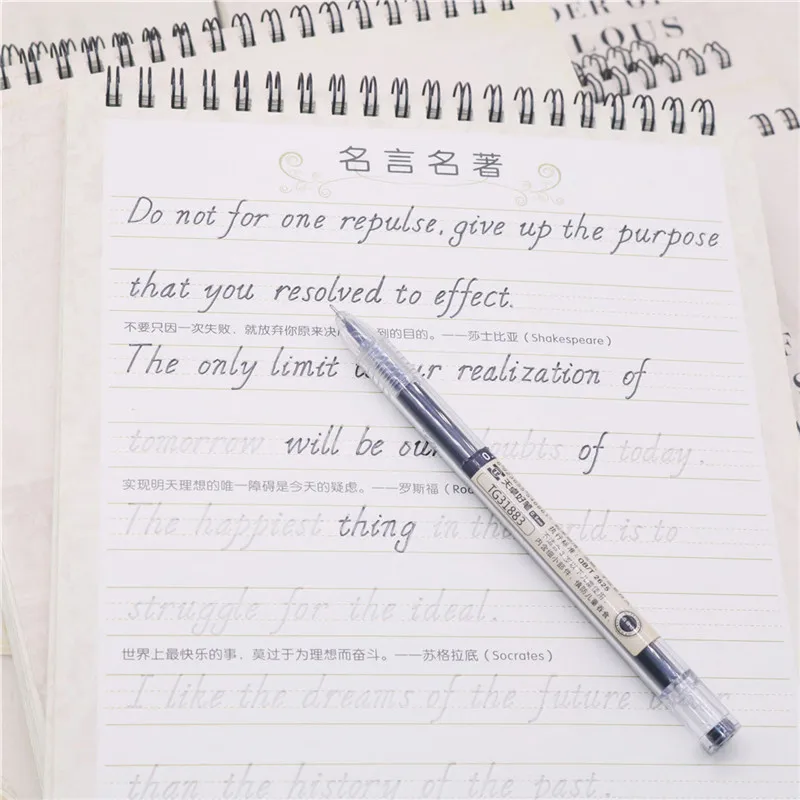 DER OF
LOUS
名言名著
Do not for one repulse, give up the purpose
that you resolved to effect.
不要只因一次失败、就放弃你原来决 到的目的。——莎士比亚(Shakespeare)
The only limit our realization of
tomorrow will be our doubts of today.
实现明天理想的唯一障碍是今天的疑虑。——罗斯福(Roo
The happiest thing in the world is to
struggle for the ideal.
世界上最快乐的事,莫过于为理想而奋斗。——苏格拉底(Socrates)
I like the dreams of the future
than the history of the past.
天卓好笔
TG31883
执行标准:GB/T 2625